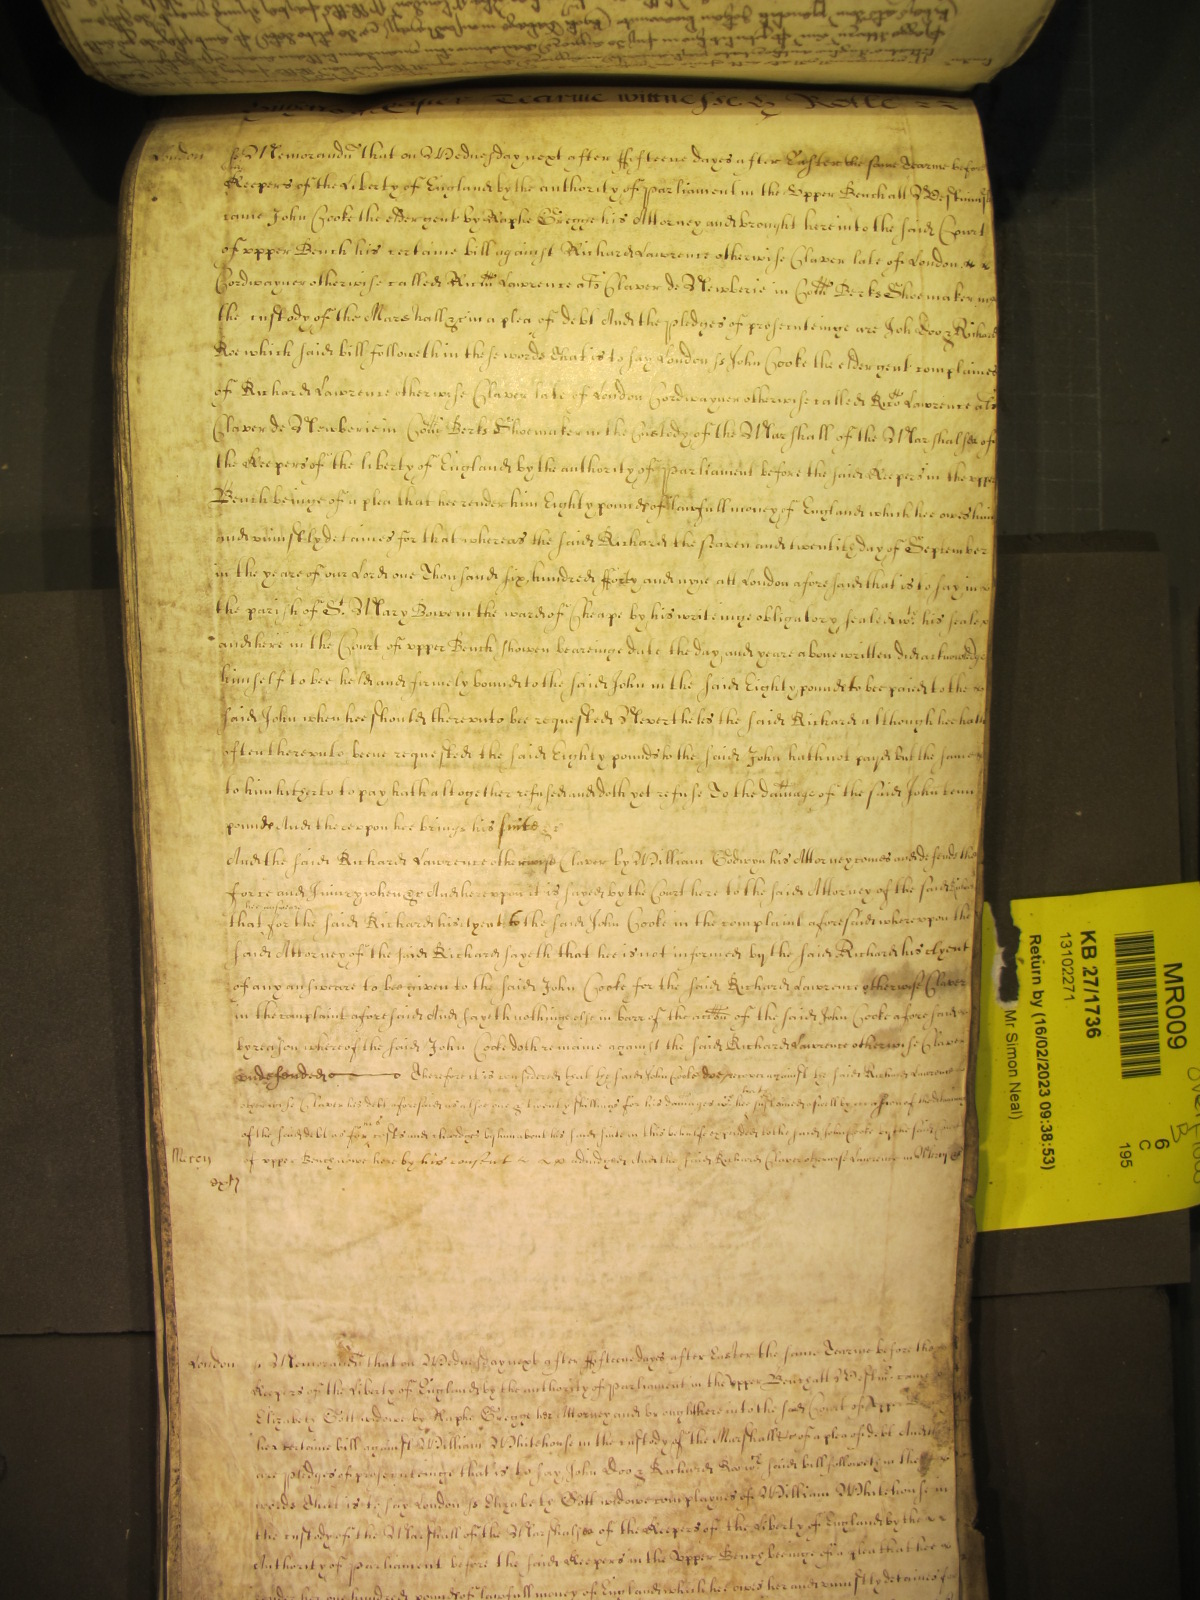 Tearme wittnesse Rolle
London ss Memorandu that on Wednesday next after ffifteene dayes after Easter the same Tearme before
Keepers of the Liberty of England by the authority of Parliament in the Upper Bench att Westminst
came John Cooke the elder gent by Raphe Gregge his Attorney and brought here into the said Court
of vpper Bench his certaine bill against Richard Lawrence otherwise Claver late of London
Cordwayner otherwise called Ricu Lawrence als Claver de Newberie in Com Berks Shoemaker in
the custody of the Marshall &c in a plea of debt And the pledges of prosecuteinge are John Doo & Richard
Roe which said bill followeth in these words that is to say London ss John Cooke the elder gent complaines
of Richard Lawrence otherwise Claver late of London Cordwayner otherwise called Rico Lawrence als
Claver de Newberie in Com Berks Shoemaker in the Custody of the Marshall of the Marshalsea of
the Keepers of the liberty of England by the authority of Parliament before the said Keepers in the vpper
Bench beinge of a plea that hee render him Eighty pounds of lawfull money of England which hee owes him
and uniustly detaines for that whereas the said Richard the seaven and twentith day of September
in the yeare of our Lord one Thousand six hundred fforty and nyne att London aforesaid that is to say in
the parish of St Mary Bowe in the ward of Cheape by his writeinge obligatory sealed wth his seale
and here in the Court of vpper Bench showen beareinge date the day and yeare above written did acknowledge
himself to bee held and firmely bound to the said John in the said Eighty pounds to bee paied to the
said John when hee should therevnto bee requested Neverthelesse the said Richard although hee hath
often therevnto beene requested the said Eighty pounds to the said John hath not payd but the same
to him hitherto to pay hath altogether refused and doth yet refuse To the damage of the said John tenn
pounds And therevpon hee brings his suite &c
And the said Richard Lawrence otherwise Claver by William Godwyn his Attorney comes and defends the
force and Iniury when &c And herevpon it is sayed by the Court here to the said Attorney of the said Richard
that for the said Richard his clyent hee answeare to the said John Cooke in the complaint aforesaid wherevpon the
said Attorney of the said Richard sayeth that hee is not informed by the said Richard his clyent
of any answeare to bee given to the said John Cooke for the said Richard Lawrence otherwise Claver
in the complaint aforesaid And sayeth nothinge else in barr of the accon of the said John Cooke aforesaid
by reason whereof the said John Cooke doth remaine against the said Richard Lawrence otherwise Claver
vndefended Therefore it is considered that the said John Cooke doe recover against the said Richard Lawrence
otherwise Claver his debt aforesaid as alsoe twenty shillings for his damages wch hee hath susteined aswell by occasion of the deteininge
of the said debt as for his costs and charges by him about his suite in this behalfe expended to the said John Cooke by the said Court
of vpper Bench nowe here by his consent adiudged And the said Richard Claver otherwise Lawrence in Mercy &c
Mccon
London ss Memorandu that on Wednesday next after ffifteene dayes after Easter the same Tearme before the
Keepers of the Liberty of England by the authority of Parliament in the Vpper Bench att Westmr came
Elizabeth Gott widowe by Raphe Gregge her Attorney and brought here into the said Court of vpper
her certaine bill against William Whitehouse in the custody of the Marshall &c of a plea of debt And there
are pledges of prosecuteinge that is to say John Doo & Richard Roe wch said bill followeth in these
words that is to say London ss Elizabeth Gott widowe complaynes of William Whitehouse in
the custody of the Marshall of the Marshalsea of the Keepers of the Liberty of England by the
Authority of Parliament before the said Keepers in the Vpper Bench beinge of a plea that hee
render her one hundred pounds of lawfull money of England which hee owes her and uniustly detaines for
MR009
6
C
195
KB 27/1736
13102271
Return by (16/02/2023 09:38:53)
Mr Simon Neal)